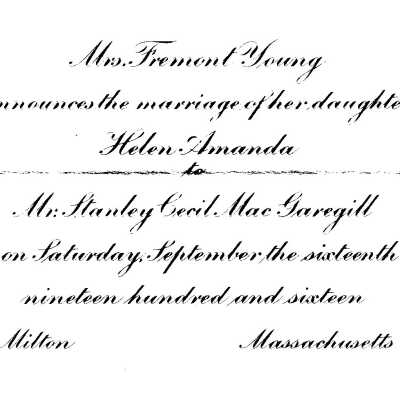 Mrs. Fremont Young
nnounces the marriage of her daughte
Helen Amanda
to
Mr. Stanley Cecil Mac Garegill
on Saturday, September, the sixteenth
nineteen hundred and sixteen
Milton Massachusetts